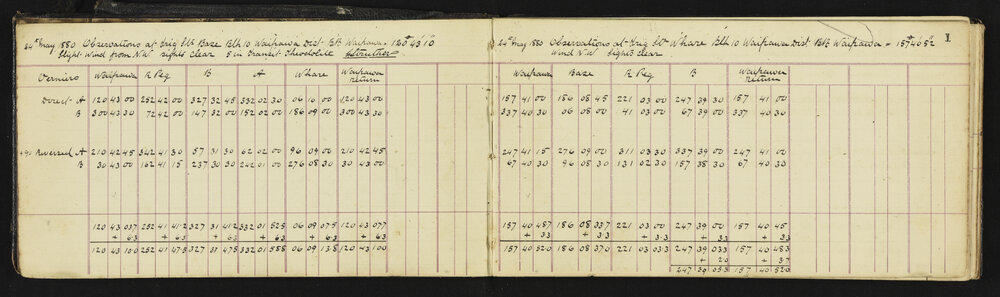 24th May 1880 Observations at Trig Stn Base Blk 10 Waipawa Dist. BtB Waipawa = 120° 43' 10"
Slight Wind from N.W. sights clear 8 in Transit Theodolite
Verniers Waipawa R Peg B A Whare Waipawa return
Direct A 120 43 00 252 42 00 327 32 45 332 02 30 06 10 00 120 43 00
B 300 43 30 72 42 00 147 32 00 152 02 00 186 09 00 300 43 30
+90 Reversed A 210 42 45 342 41 30 57 31 30 62 02 00 96 09 00 210 42 45
B 30 43 00 162 41 15 237 30 30 242 01 00 276 08 30 30 43 00
120 43 03.7 252 41 41.2 327 31 41.2 332 01 52.5 06 09 07.5 120 43 03.7
+ 6.3 + 6.3 + 6.3 + 6.3 + 6.3 + 6.3
120 43 10.0 252 41 47.5 327 31 47.5 332 01 58.8 06 09 13.8 120 43 10.0
1
24th May 1880 Observations at Trig Stn Whare Blk 10 Waipawa Dist BtB Waipawa = 157° 40' 52"
Wind N.W. sights clear
Waipawa Base R Peg B Waipawa return
157 41 00 186 08 45 221 03 00 247 39 30 157 41 00
337 40 30 06 08 00 41 03 00 67 39 00 337 40 30
247 41 15 276 09 00 311 03 30 337 39 00 247 41 00
67 40 30 96 08 30 131 02 30 157 38 30 67 40 30
157 40 48.7 186 08 33.7 221 03 00 247 39 00 157 40 45
+ 3.3 + 3.3 + 3.3 + 3.3 + 3.3
157 40 52.0 186 08 37.0 221 03 03.3 247 39 03.3 157 40 48.3
+ 2.0 + 3.7
247 39 05.3 157 40 52.0